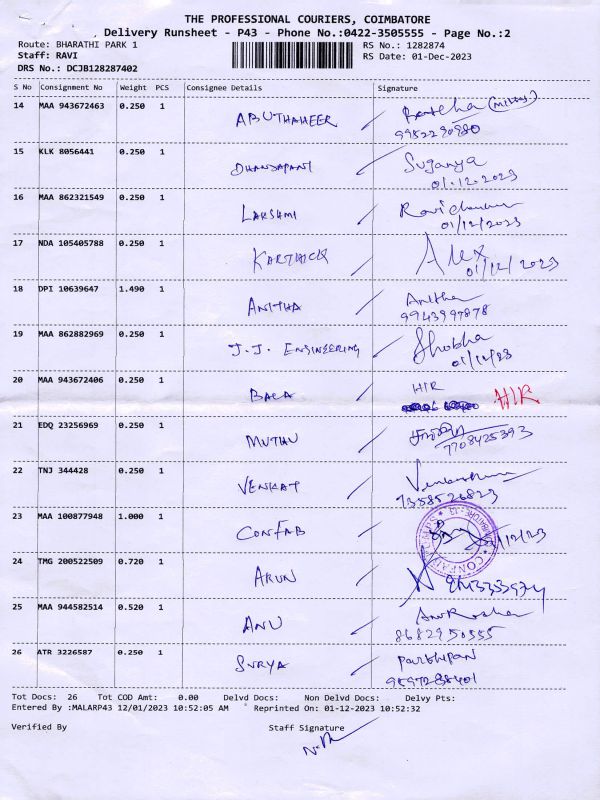 THE PROFESSIONAL COURIERS, COIMBATORE
Delivery Runsheet - P43 - Phone No.:0422-3505555 - Page No.:2
Route: BHARATHI PARK 1 RS No.: 1282874
Staff: RAVI RS Date: 01-Dec-2023
DRS No.: DCJB128287402
S No Consignment No Weight PCS Consignee Details Signature
14 MAA 943672463 0.250 1 ABUTHAHEER
9952290980
15 KLK 8056441 0.250 1 DHANDAPANI Suganya
01.12.2023
16 MAA 862321549 0.250 1 LAKSHMI
01/12/2023
17 NDA 105405788 0.250 1 KARTHICK Alex
01/12/2023
18 DPI 10639647 1.490 1 ANITHA Anitha
9943997878
19 MAA 862882969 0.250 1 J.J. ENGINEERING Shobha
01/12/23
20 MAA 943672406 0.250 1 BALA HIR HIR
21 EDQ 23256969 0.250 1 MUTHU
7708425393
22 TNJ 344428 0.250 1 VENKAT
7358526823
23 MAA 100877948 1.000 1 CONFAB
24 TMG 200522509 0.720 1 ARUN
25 MAA 944582514 0.520 1 ANU
8682950555
26 ATR 3226587 0.250 1 SURYA Parthipan
Tot Docs: 26 Tot COD Amt: 0.00 Delvd Docs: Non Delvd Docs: Delvy Pts:
Entered By :MALARP43 12/01/2023 10:52:05 AM Reprinted On: 01-12-2023 10:52:32
Verified By Staff Signature